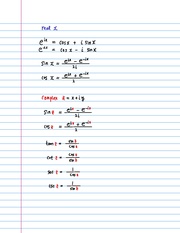 Real X
e^{ix} = cos x + i sin x
e^{-ix} = cos x - i sin x
sin x = \frac{e^{ix} - e^{-ix}}{2i}
cos x = \frac{e^{ix} + e^{-ix}}{2}
Complex z = x + iy
sin z = \frac{e^{iz} - e^{-iz}}{2i}
cos z = \frac{e^{iz} + e^{-iz}}{2}
tan z = \frac{sin z}{cos z}
cot z = \frac{cos z}{sin z}
sec z = \frac{1}{cos z}
csc z = \frac{1}{sin z}